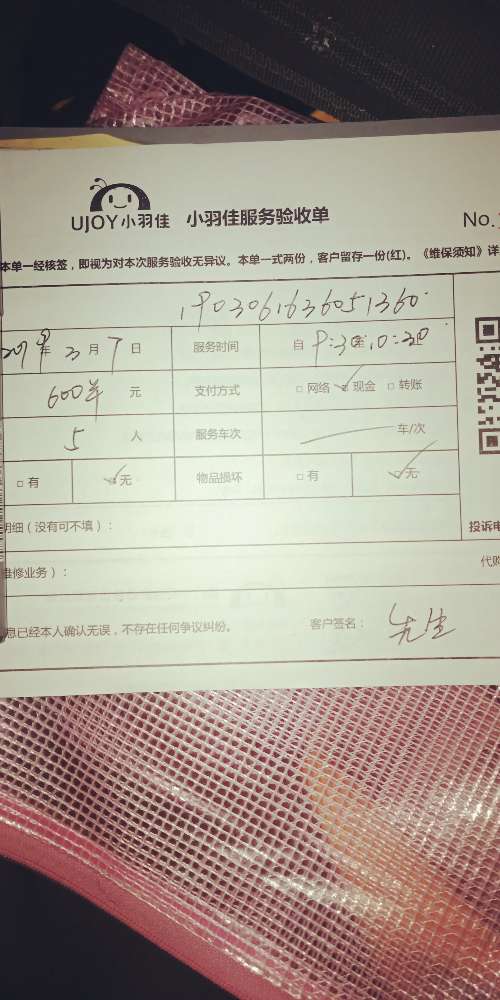 UJOY小羽佳 小羽佳服务验收单
No.
本单一经核签，即视为对本次服务验收无异议。本单一式两份，客户留存一份(红)。《维保须知》详
190306163605 1360
2019年3月7日 服务时间 自 9:30至10:30
600半 元 支付方式 □网络 ☑现金 □转账
5 人 服务车次 车/次
□有 ☑无 物品损坏 □有 ☑无
明细（没有可不填）： 投诉电
维修业务）： 代购
息已经本人确认无误，不存在任何争议纠纷。 客户签名： 先生